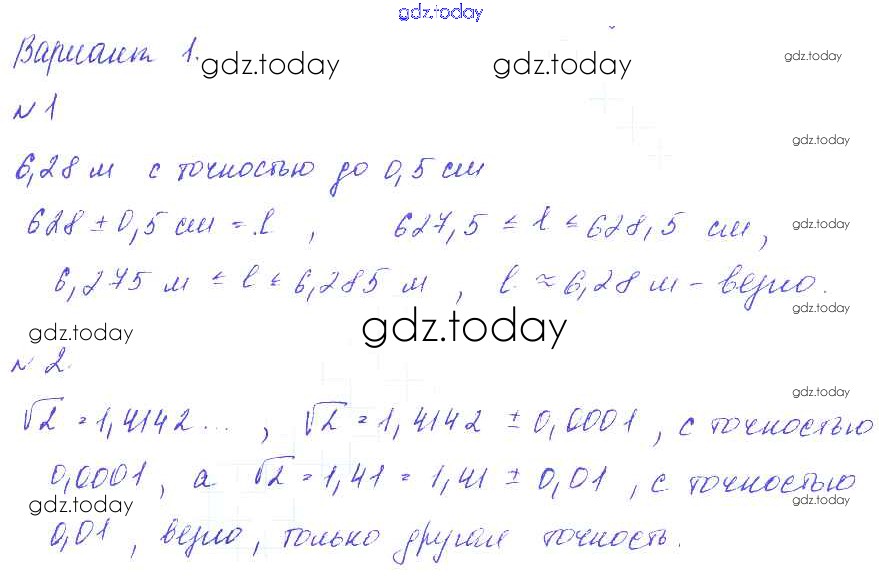 gdz.today
Вариант 1.
gdz.today gdz.today gdz.today
№ 1
gdz.today
6,28 м с точностью до 0,5 см
628 ± 0,5 см = l, 627,5 ≤ l ≤ 628,5 см,
gdz.today
6,275 м ≤ l ≤ 6,285 м, l ≈ 6,28 м - верно.
gdz.today
gdz.today gdz.today
№ 2.
gdz.today
√2 = 1,4142..., √2 = 1,4142 ± 0,0001, с точностью
0,0001, а √2 = 1,41 = 1,41 ± 0,01, с точностью
gdz.today gdz.today gdz.today
0,01, верно, только другая точность.